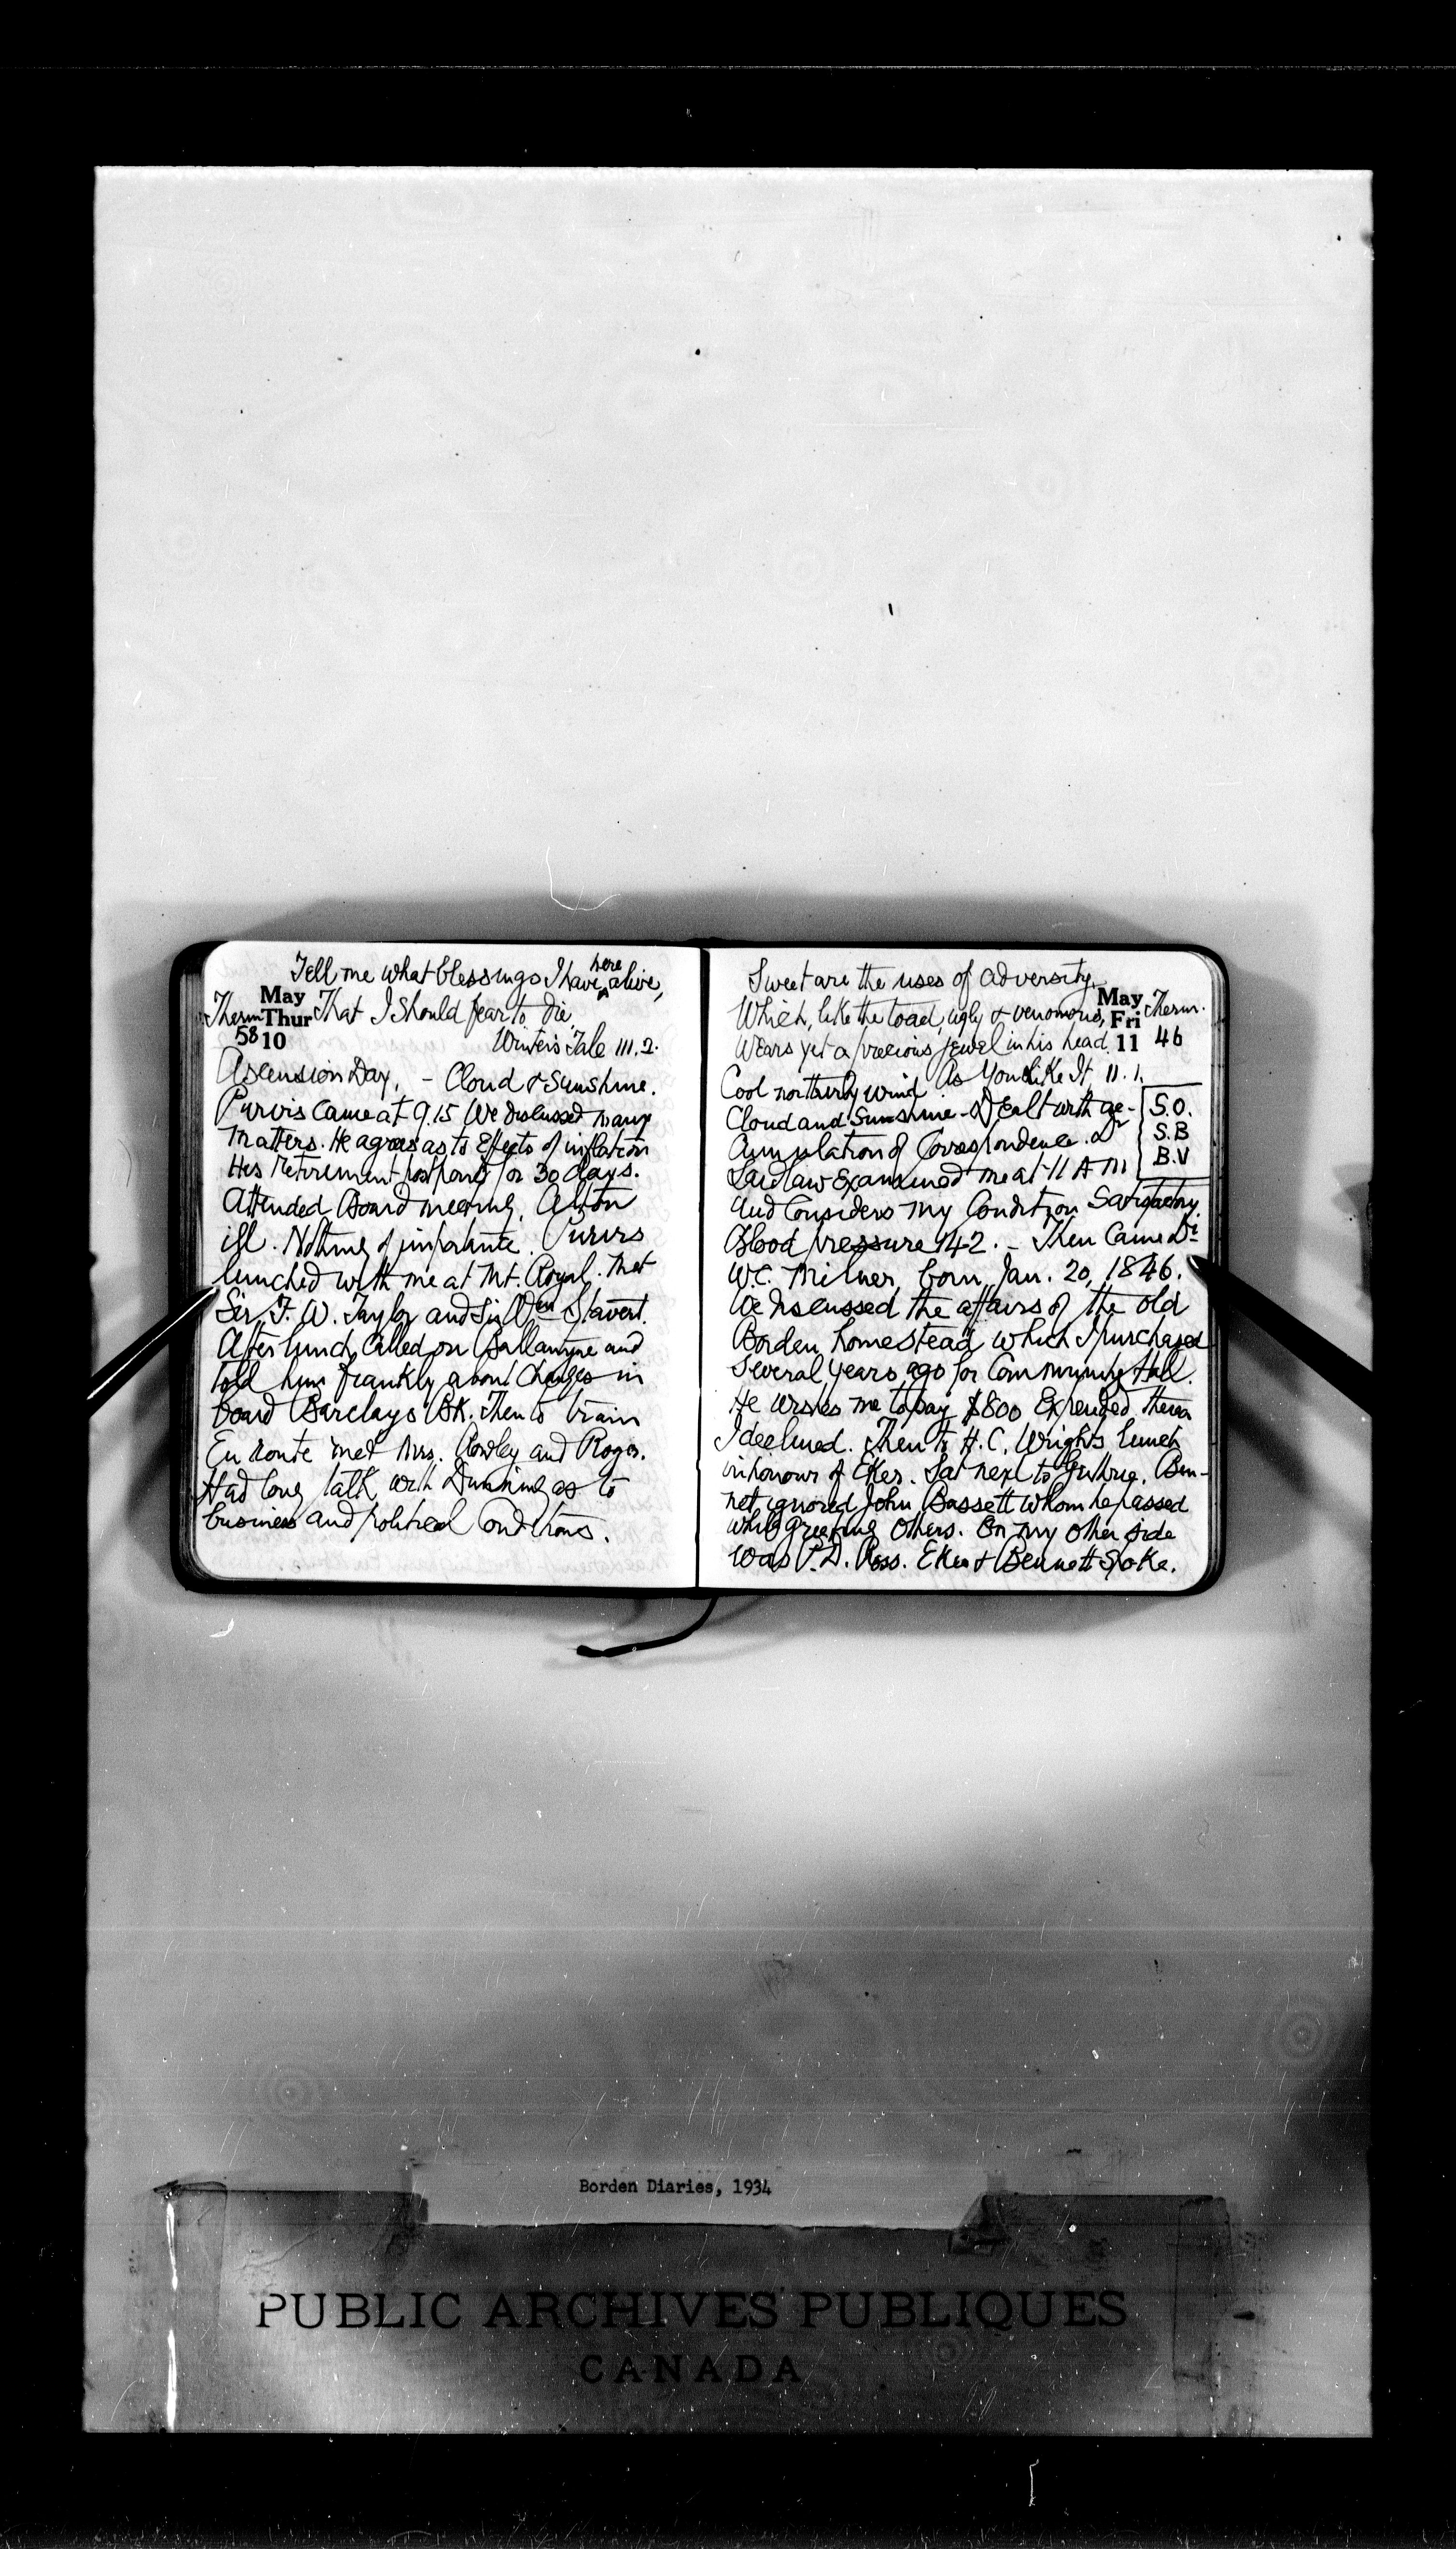 Tell me what blessings I have here alive,
May
Therm Thur That I Should fear to die.
58 10 Winter's Tale III. 2.
Ascension Day. - Cloud & Sunshine.
Purvis came at 9.15 We discussed many
matters. He agrees as to Effects of inflation
His retirement postponed for 30 days.
Attended Board meeting.
ill. Nothing of importance. Purvis
lunched with me at Mt. Royal. Met
Sir F. W. Taylor and Sir Wm Stavert.
After lunch, Called on Ballantyne and
told him frankly about Changes in
board Barclays BK. Then to train
En route met Mrs. Rowley and Roger.
Had long talk with Dunning as to
business and political Conditions.
Sweet are the uses of adversity,
Which, like the toad, ugly & venomous, May Therm.
Fri
Wears yet a precious jewel in his head. 11 46
As You Like It II. 1.
Cool northerly wind
Cloud and Sunshine - Dealt with ac-
cumulation of Correspondence. Dr
Laidlaw Examined me at 11 A M
S.O.
S.B
B.V
and Considers my Condition Satisfactory.
Blood pressure 142. - Then Came Dr
W.C. Milner, born Jan. 20, 1846.
We discussed the affairs of the old
Borden homestead which I purchased
Several years ago for Community Hall.
He wishes me to pay $800 Expended thereon
I declined. Then to H.C. Wrights lunch
in honour of Eker. Sat next to Guthrie. Ben-
net ignored John Bassett whom he passed
while greeting others. On my other side
was P.D. Ross. Eker & Bennett Spoke.
Borden Diaries, 1934
PUBLIC ARCHIVES PUBLIQUES
CANADA